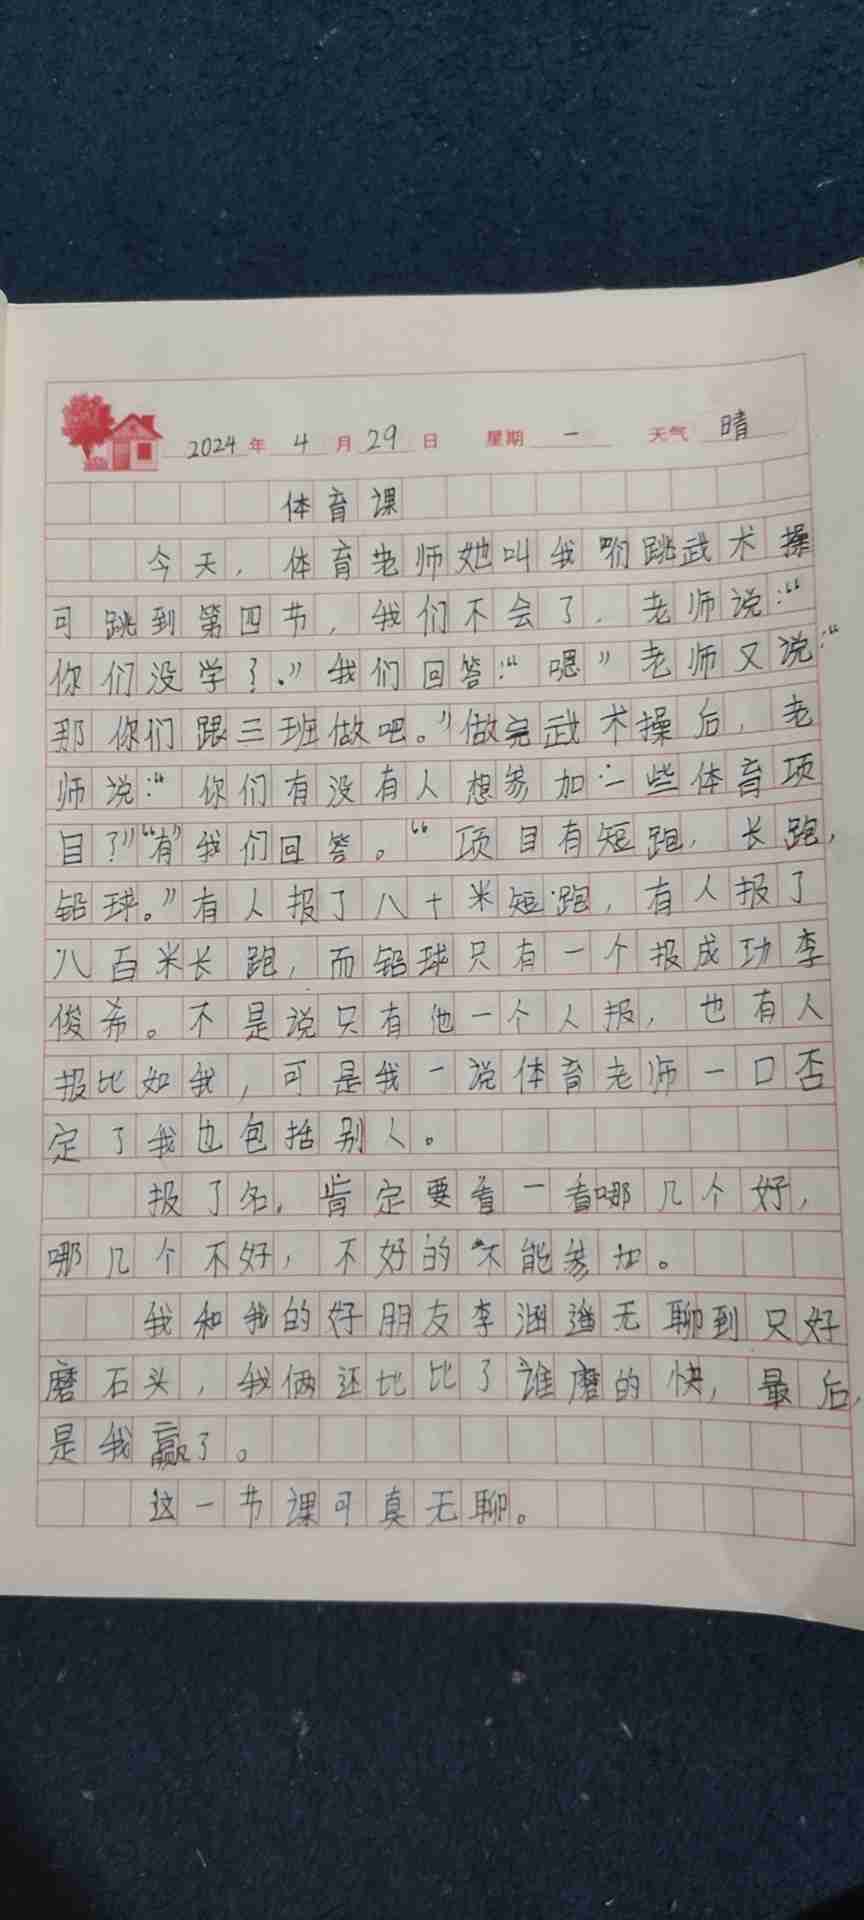 2024年4月29日 星期一 天气晴
体育课
今天，体育老师她叫我们跳武术操
可跳到第四节，我们不会了，老师说：“
你们没学了。”我们回答：“嗯”老师又说：“
那你们跟三班做吧。”做完武术操后，老
师说：“你们有没有人想参加一些体育项
目了”“有”我们回答。“项目有短跑，长跑，
铅球。”有人报了八十米短跑，有人报了
八百米长跑，而铅球只有一个报成功李
俊希。不是说只有他一个人报，也有人
报比如我，可是我一说体育老师一口否
定了我也包括别人。
报了名，肯定要看一看哪几个好，
哪几个不好，不好的不能参加。
我和我的好朋友李涵无聊到只好
磨石头，我俩还比比了谁磨的快，最后，
是我赢了。
这一节课可真无聊。